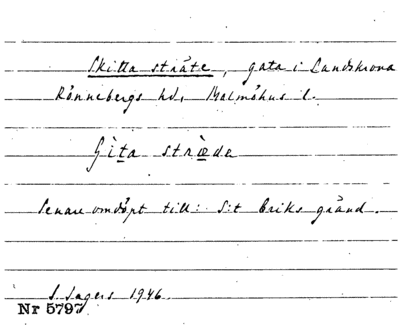 Skitta sträte, gata i Landskrona
Rönnebergs hd, Malmöhus l.
Gìta stræ̀da
Senare omdöpt till: S:t Eriks gränd.
S. Sagers 1946.
Nr 5797